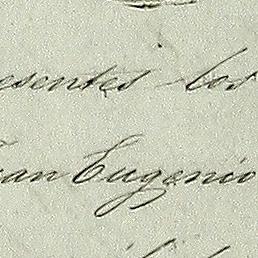 esentes los
ran Eugenio